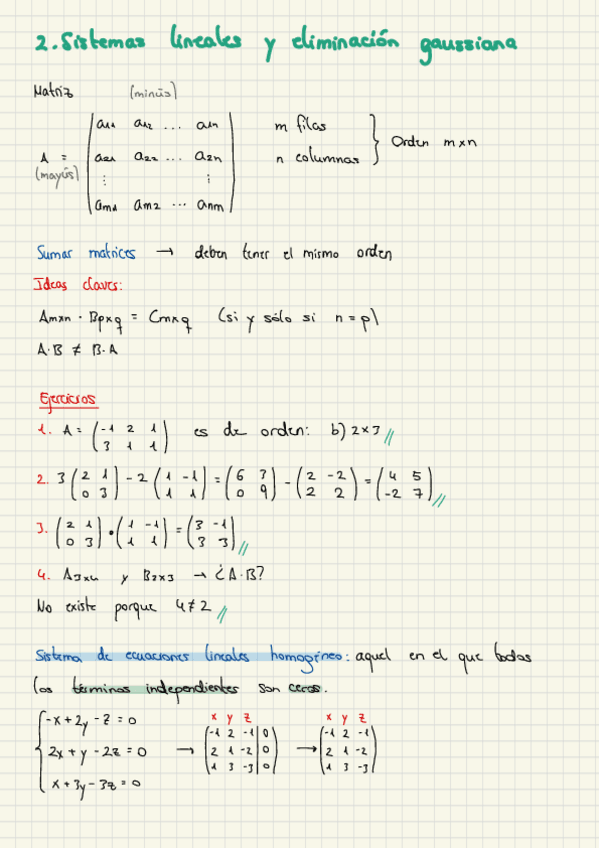 2. Sistemas lineales y eliminación gaussiana
Matriz (minús)
a11 a12 ... a1n
m filas
A = a21 a22 ... a2n
n columnas
Orden m×n
(mayús)
⋮ ⋮
am1 am2 ... anm
Sumar matrices → deben tener el mismo orden
Ideas claves:
Am×n · Bp×q = Cm×q (si y sólo si n = p)
A·B ≠ B·A
Ejercicios
1. A = (-1 2 1 / 3 1 1) es de orden: b) 2×3 //
2. 3 (2 1 / 0 3) - 2 (1 -1 / 1 1) = (6 3 / 0 9) - (2 -2 / 2 2) = (4 5 / -2 7) //
3. (2 1 / 0 3) · (1 -1 / 1 1) = (3 -1 / 3 3) //
4. A3×4 y B2×3 → ¿A·B?
No existe porque 4≠2 //
Sistema de ecuaciones lineales homogéneo: aquel en el que todos
los términos independientes son ceros.
x y z x y z
-x + 2y - z = 0 → (-1 2 -1 | 0) → (-1 2 -1)
2x + y - 2z = 0 (2 1 -2 | 0) (2 1 -2)
x + 3y - 3z = 0 (1 3 -3 | 0) (1 3 -3)